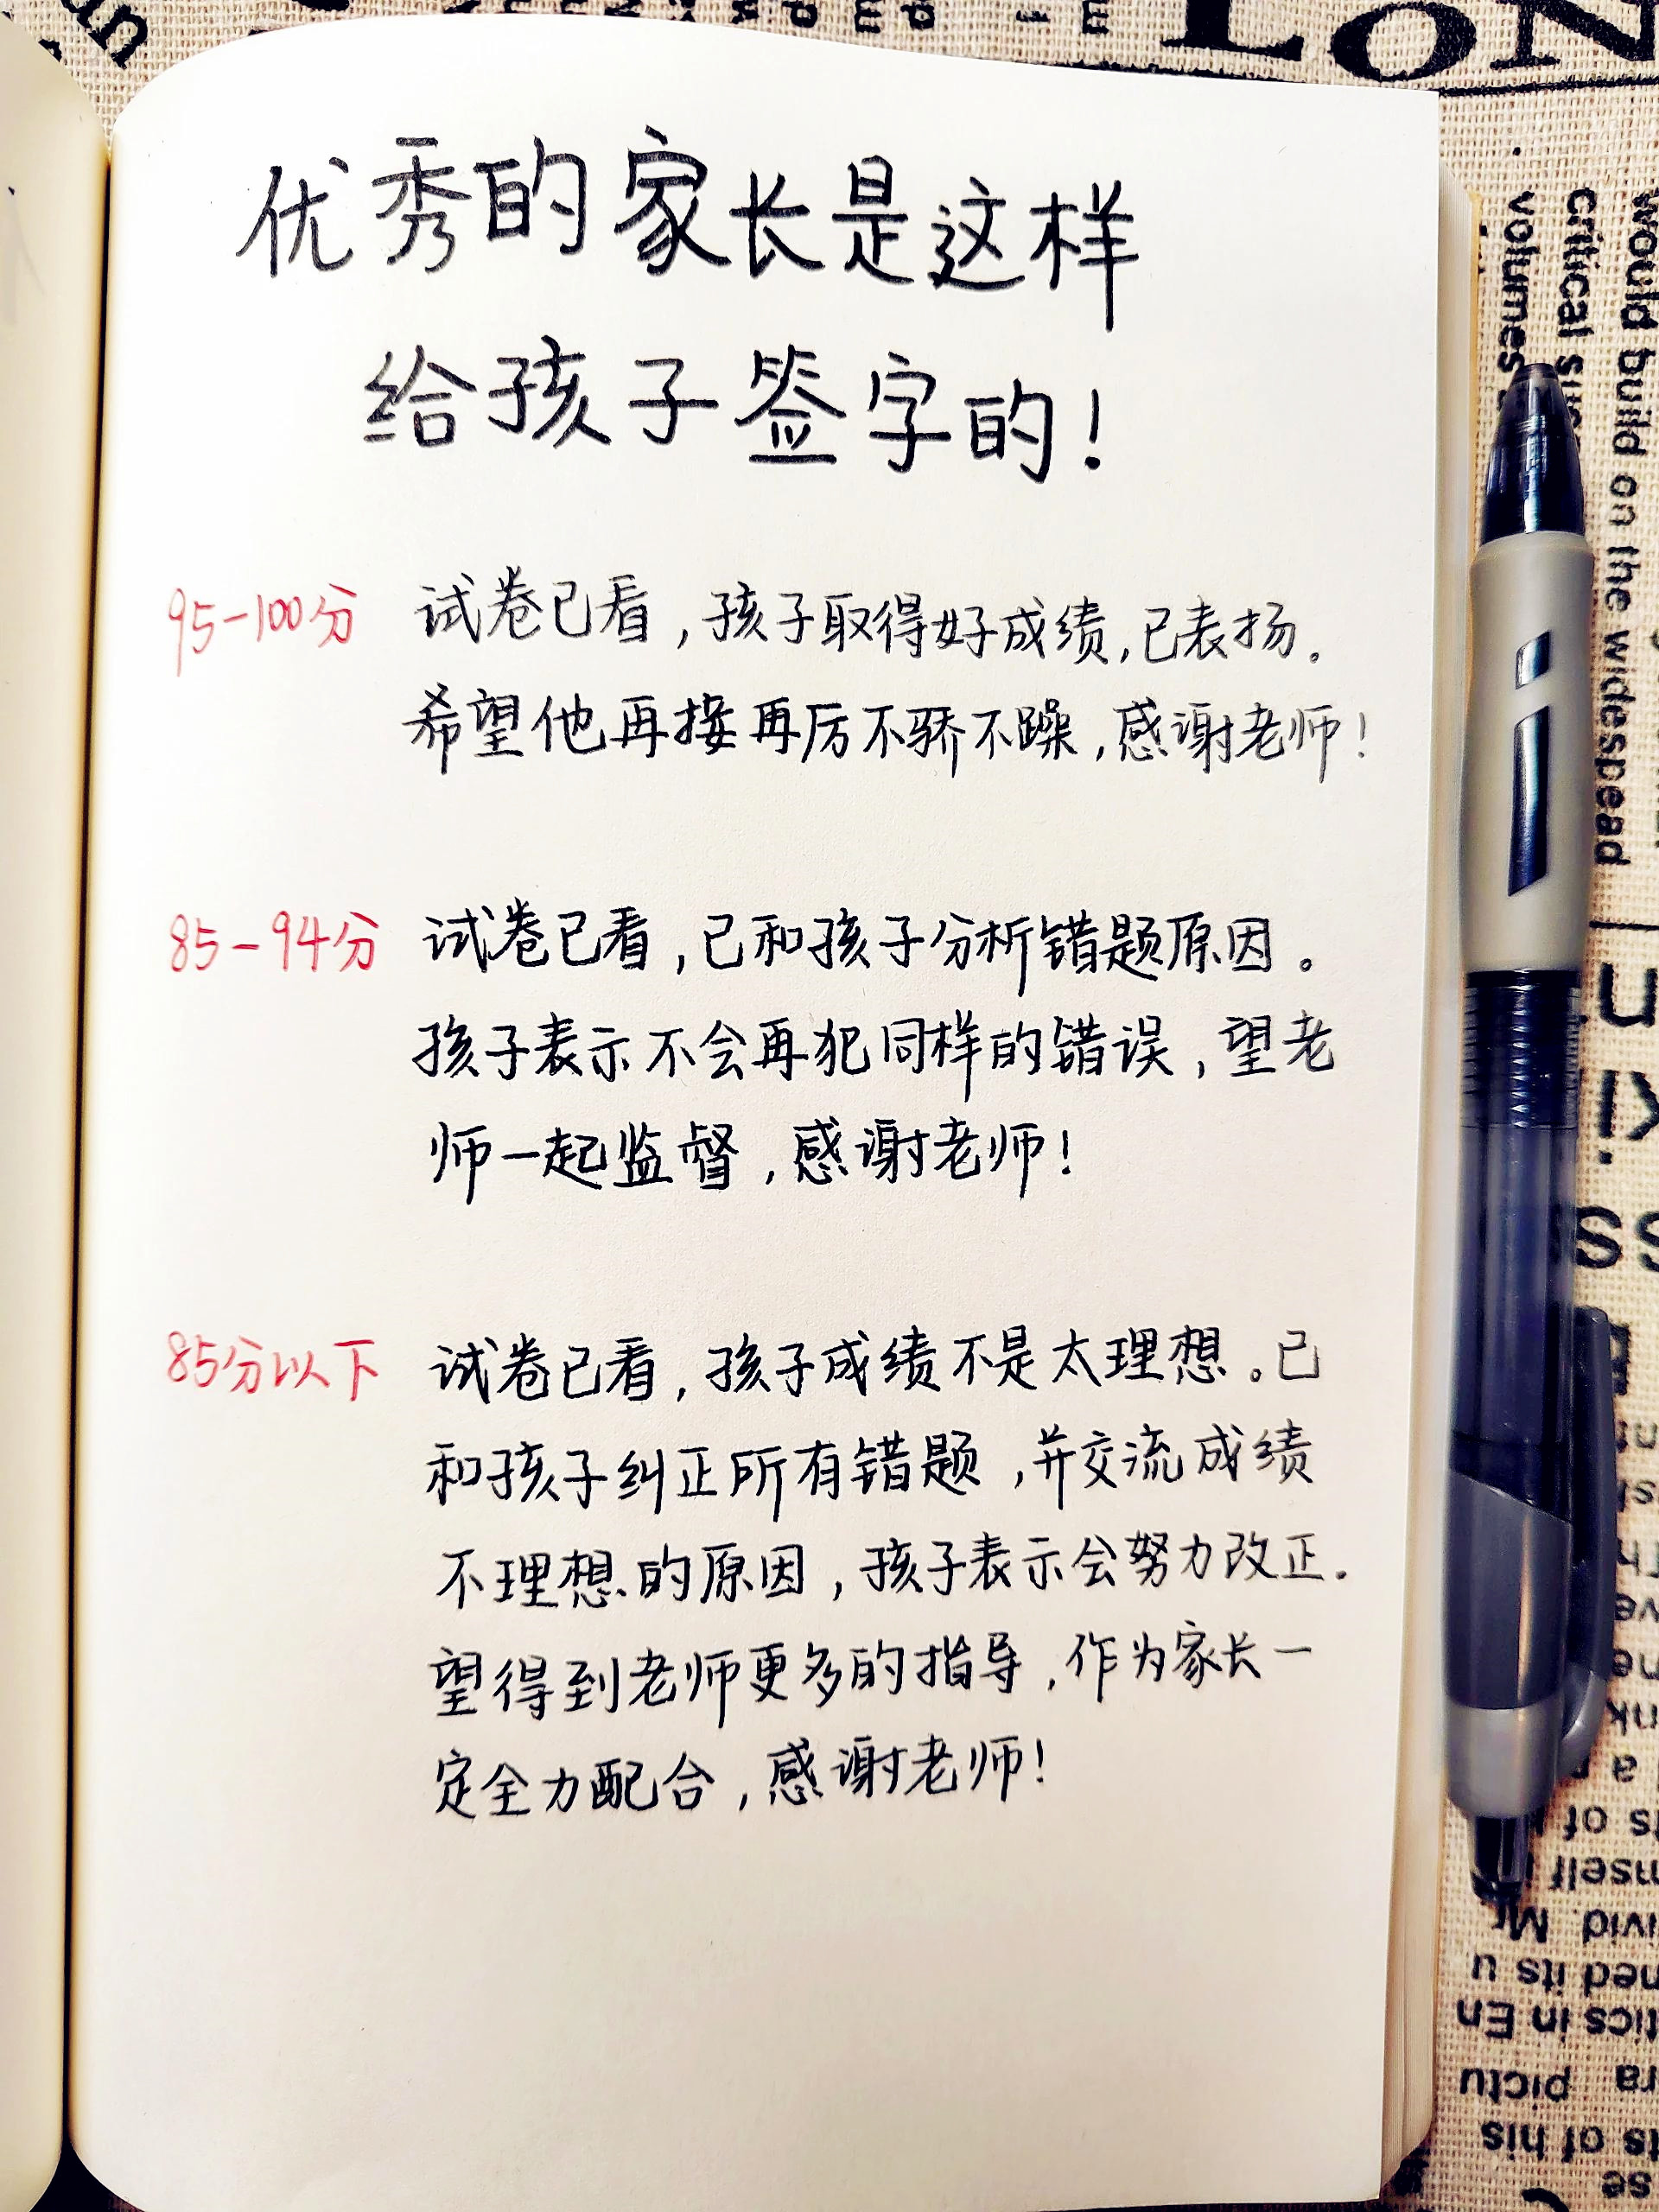 优秀的家长是这样
给孩子签字的!
95-100分 试卷已看,孩子取得好成绩,已表扬。
希望他再接再厉不骄不躁,感谢老师!
85-94分 试卷已看,已和孩子分析错题原因。
孩子表示不会再犯同样的错误,望老
师一起监督,感谢老师!
85分以下 试卷已看,孩子成绩不是太理想。已
和孩子纠正所有错题,并交流成绩
不理想的原因,孩子表示会努力改正.
望得到老师更多的指导,作为家长一
定全力配合,感谢老师!
LON
would build on the widespead
critical
volumes